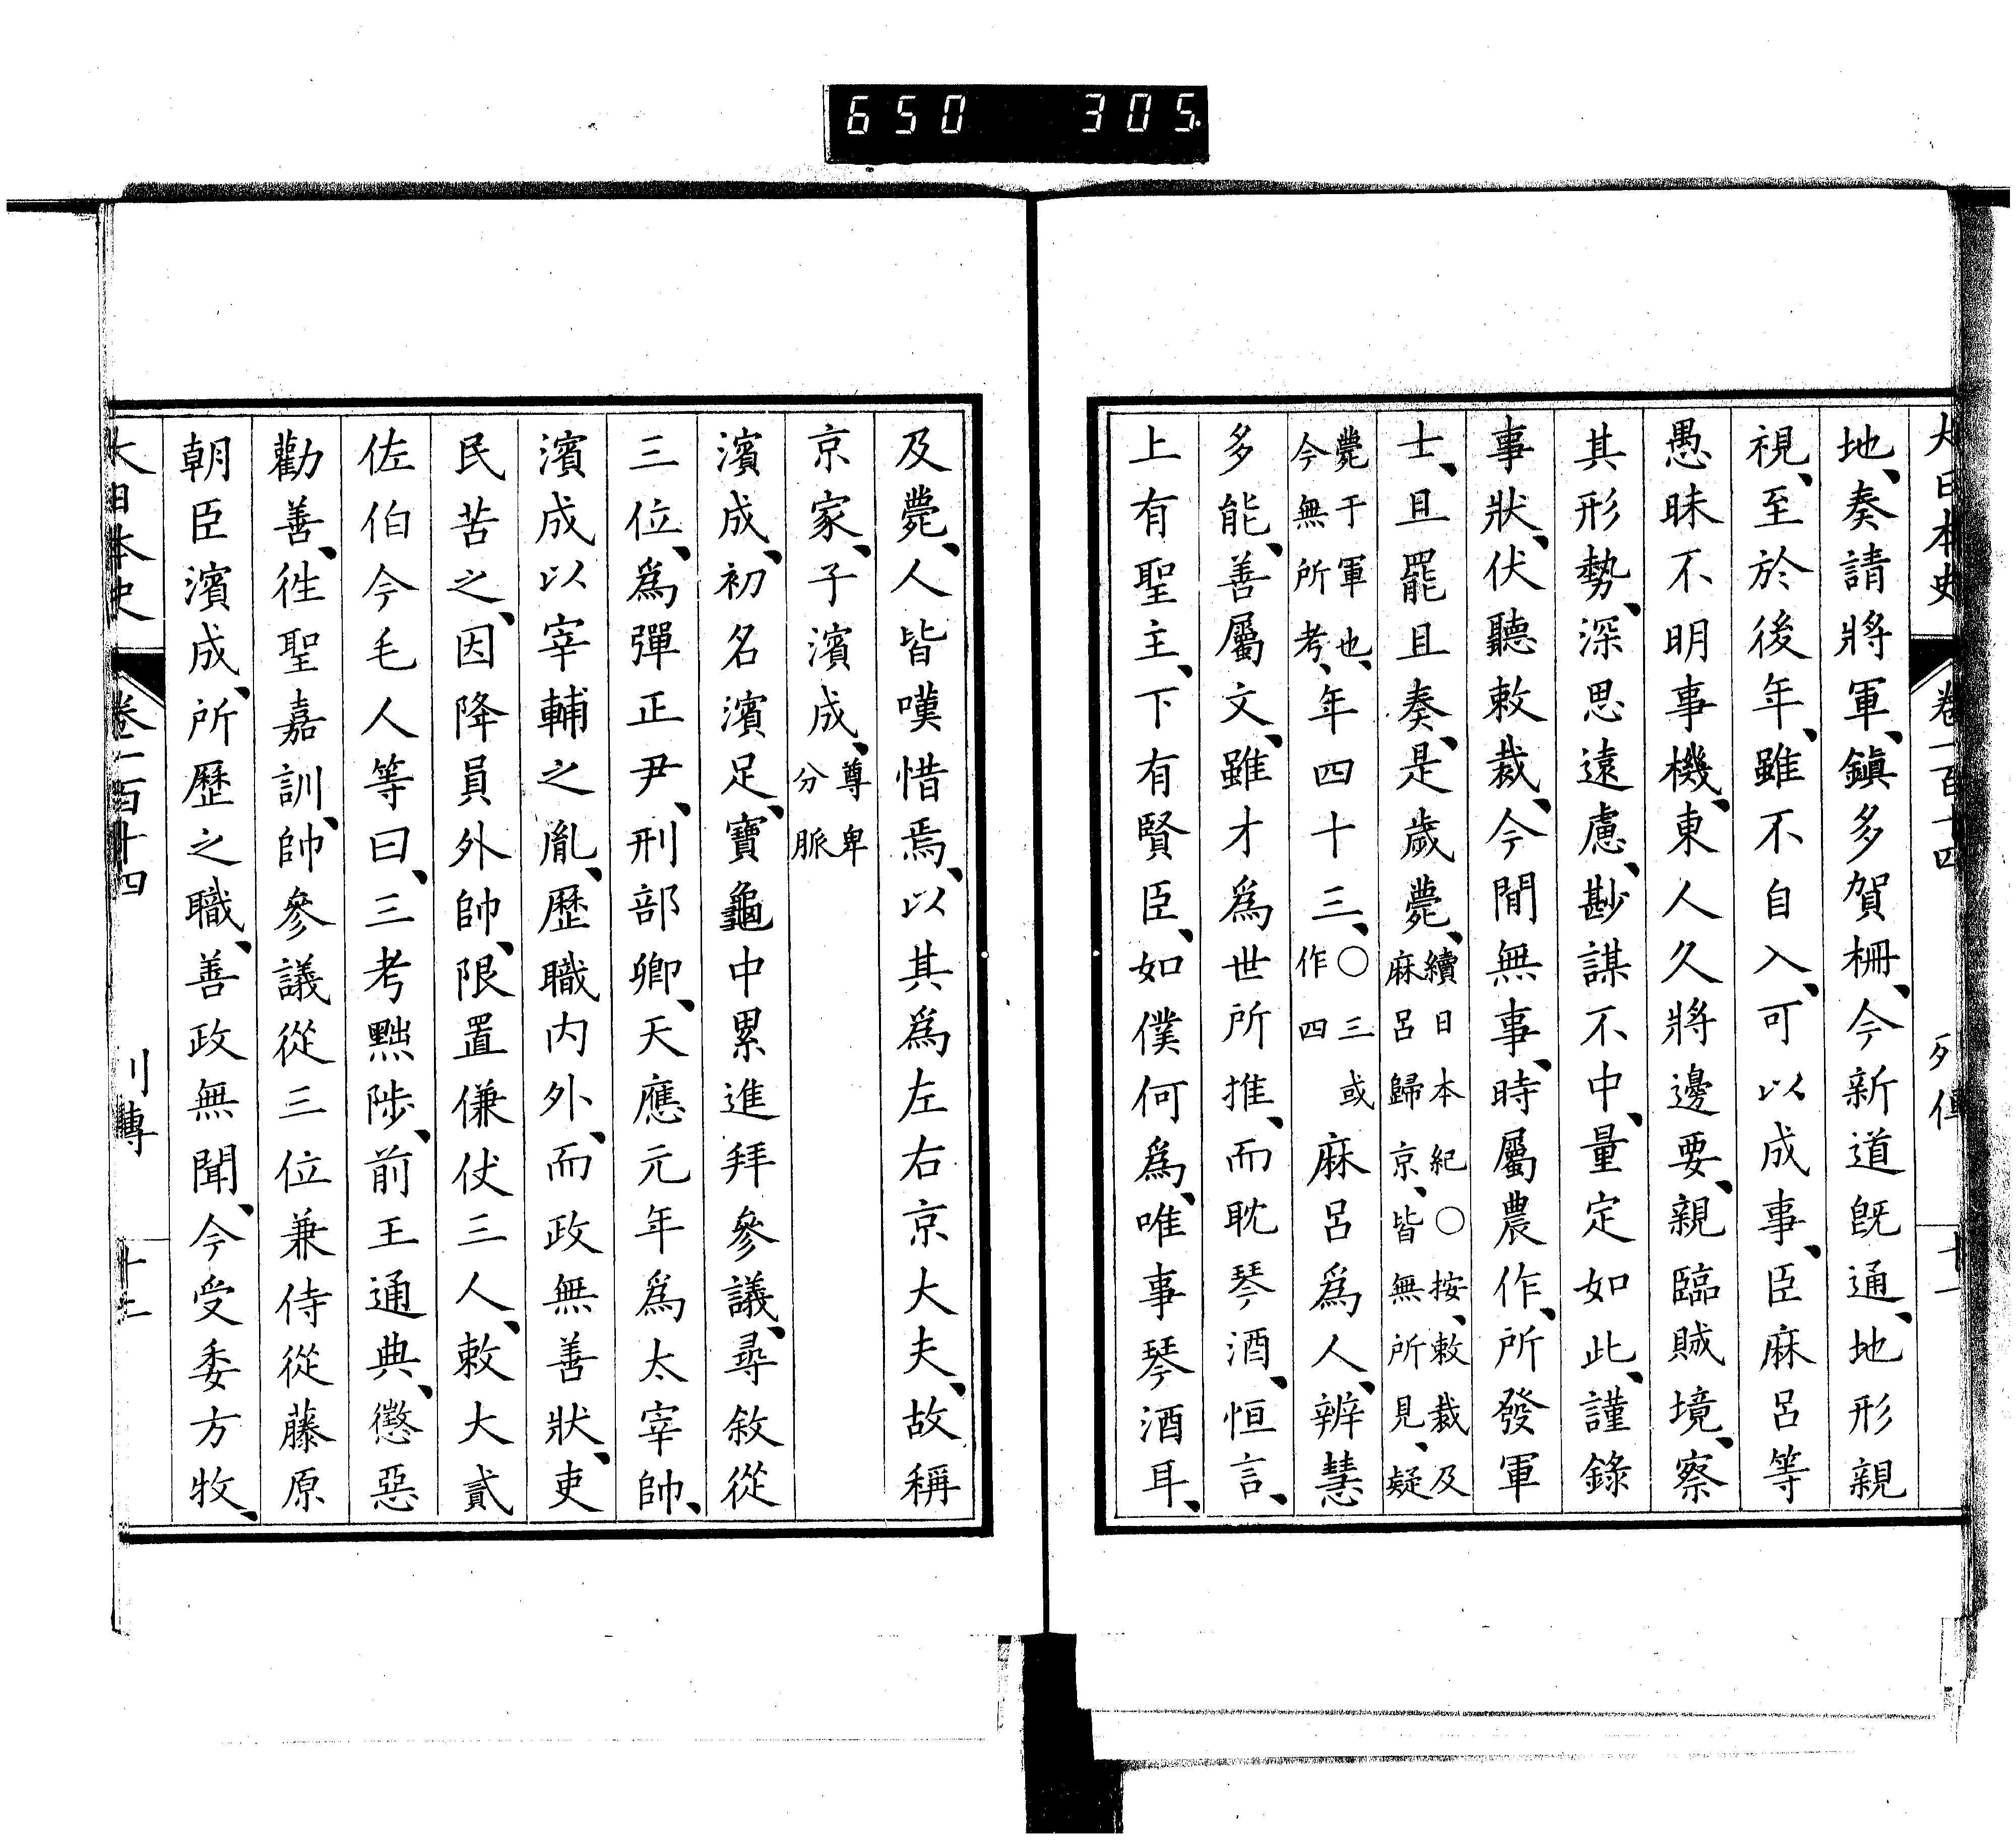 650 305
大日本史 卷一百十四 列傳 十一
地、奏請將軍、鎭多賀柵、今新道既通、地形親
視、至於後年、雖不自入、可以成事、臣麻呂等
愚昧不明事機、東人久將邊要、親臨賊境、察
其形勢、深思遠慮、尠謀不中、量定如此、謹錄
事狀、伏聽敕裁、今閒無事、時屬農作、所發軍
士、且罷且奏、是歲薨、續日本紀〇按、敕裁及麻呂歸京、皆無所見、疑
薨于軍也、今無所考、年四十三、〇三或作四麻呂爲人、辨慧
多能、善屬文、雖才爲世所推、而耽琴酒、恒言、
上有聖主、下有賢臣、如僕何爲、唯事琴酒耳、
及薨、人皆嘆惜焉、以其爲左右京大夫、故稱
京家、子濱成、尊卑分脈
濱成、初名濱足、寶龜中累進拜參議、尋敘從
三位、爲彈正尹、刑部卿、天應元年爲太宰帥、
濱成以宰輔之胤、歷職内外、而政無善狀、吏
民苦之、因降員外帥、限置傔仗三人、敕大貳
佐伯今毛人等曰、三考黜陟、前王通典、懲惡
勸善、徃聖嘉訓、帥參議從三位兼侍從藤原
朝臣濱成、所歷之職、善政無聞、今受委方牧、
大日本史 卷一百十四 列傳 十二